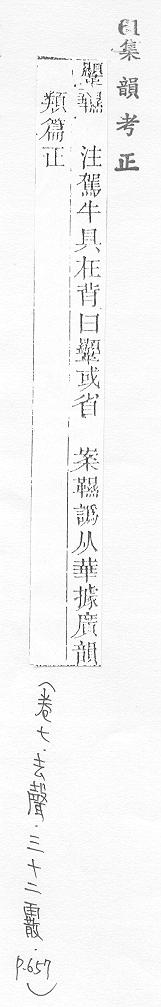 61 集韻考正
注駕牛具在背曰或省 案譌从華據廣韻
類篇正
(卷七.去聲.三十二霰.p.657)